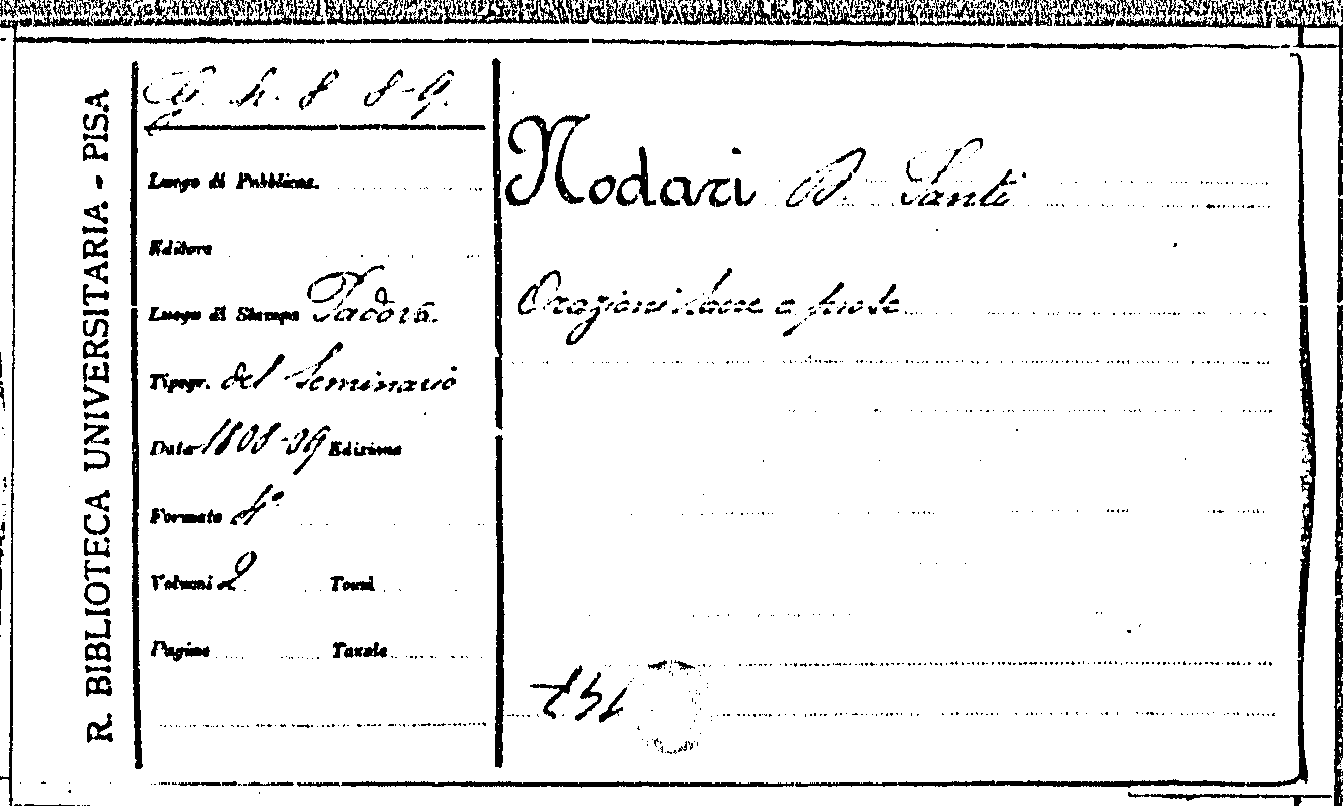 R. BIBLIOTECA UNIVERSITARIA - PISA
G. h. 8 8-9.
Luogo di Pubblicaz.
Editore
Luogo di Stampa Padova.
Tipogr. del Seminario
Data 1808-09 Edizione
Formato 4°
Volumi 2 Tomi
Pagine Tavole
Nodari B. Santi
Orazioni sacre e